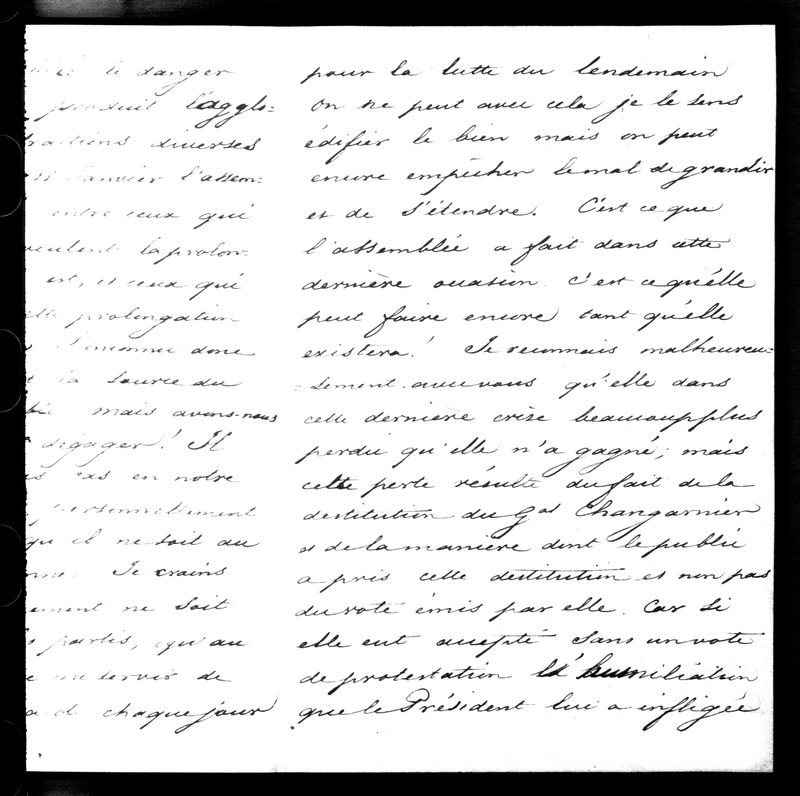 le danger
produit l'agglo=
fractions diverses
Janvier l'assem=
entre ceux qui
veulent la prolon=
est, et ceux qui
cette prolongation
l'inconnu donc
la source du
mais avons-nous
dégager! Il
cas en notre
personnellement
qu'il ne soit au
Je crains
ne soit
partis, qu'au
servir de
chaque jour
pour la lutte du lendemain
On ne peut avec cela je le sens
édifier le bien mais on peut
encore empêcher le mal de grandir
et de s'étendre. C'est ce que
l'assemblée a fait dans cette
dernière occasion. c'est ce qu'elle
peut faire encore tant qu'elle
existera! Je reconnais malheureu=
=sement avec vous qu'elle dans
cette dernière crise beaucoup plus
perdu qu'elle n'a gagné; mais
cette perte résulte du fait de la
destitution du Gal Changarnier
et de la manière dont le public
a pris cette destitution et non pas
du vote émis par elle. Car si
elle eut accepté sans un vote
de protestation l'humiliation
que le Président lui a infligée